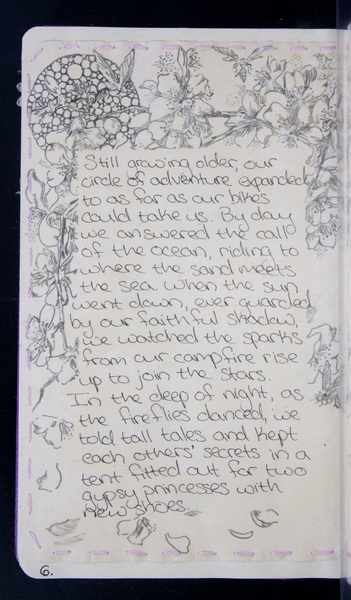 Still growing older, our
circle of adventure expanded
to as far as our bikes
could take us. By day
we answered the call
of the ocean, riding to
where the sand meets
the sea. When the sun
went down, ever guarded
by our faithful shadow,
we watched the sparks
from our campfire rise
up to join the stars.
In the deep of night, as
the fireflies danced, we
told tall tales and kept
each others' secrets in a
tent fitted out for two
gypsy princesses with
new shoes.
6.